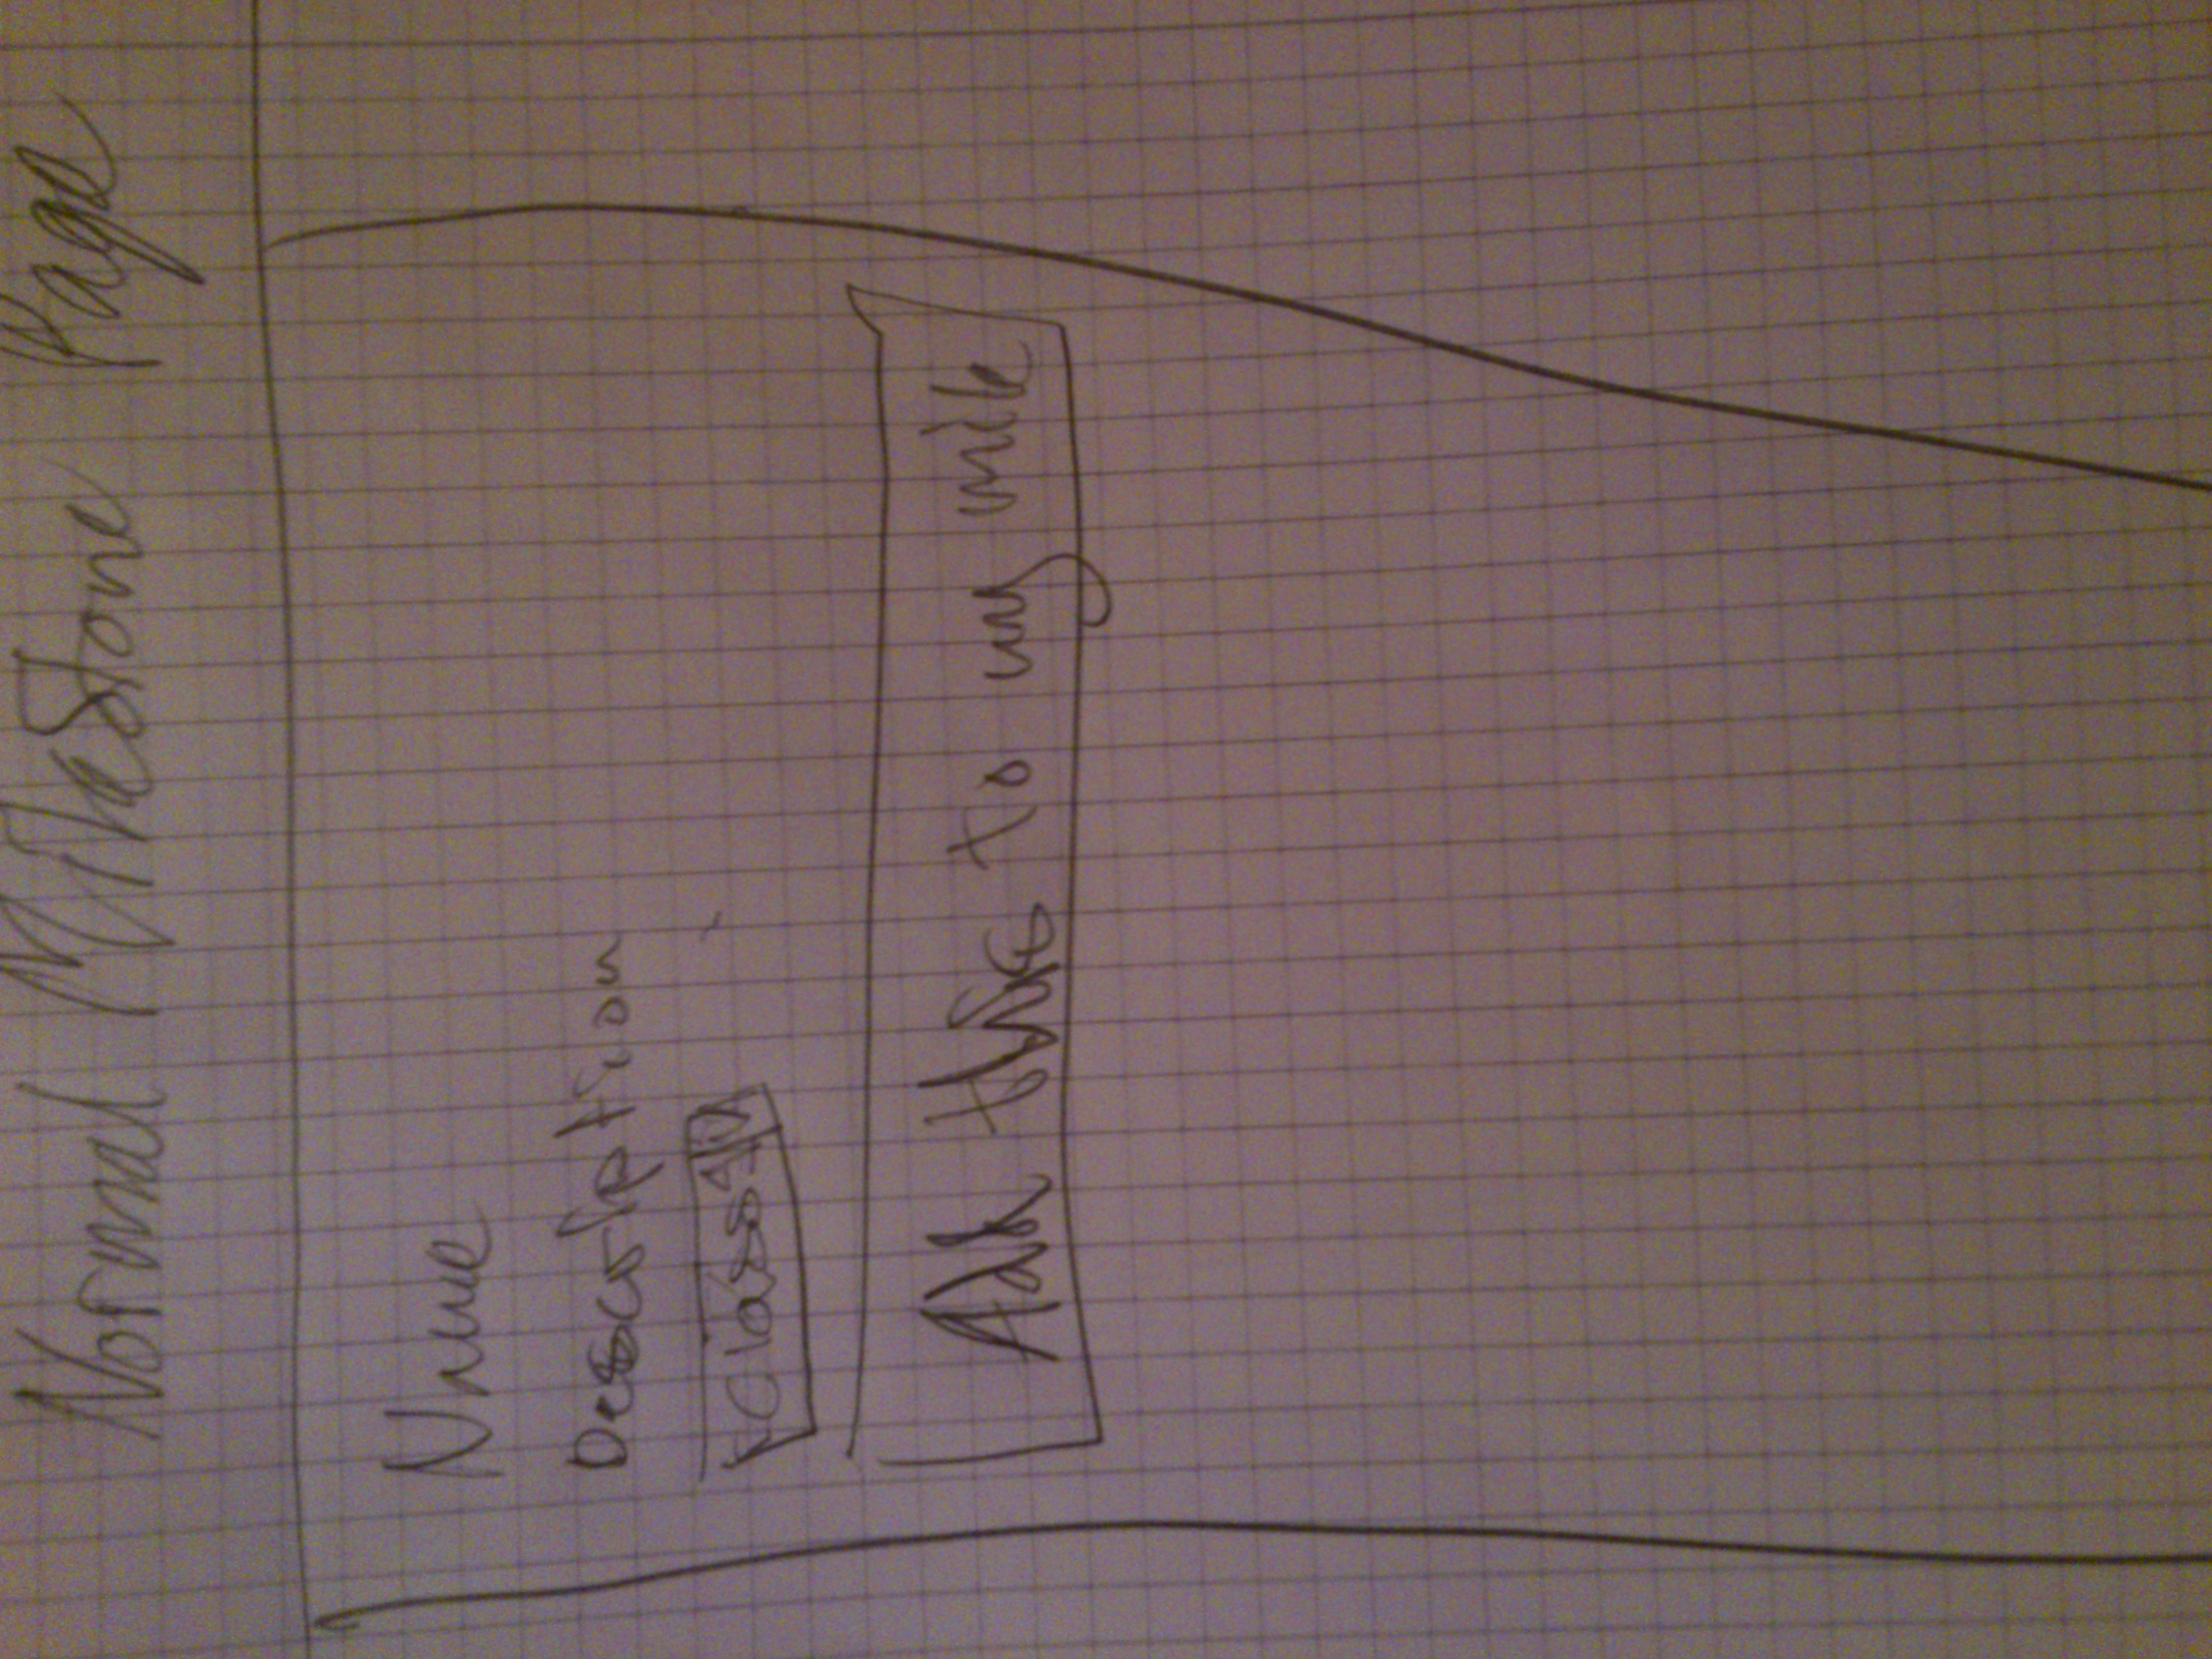 Normal Milestone Page
Name
Description
class
Add this to my mile